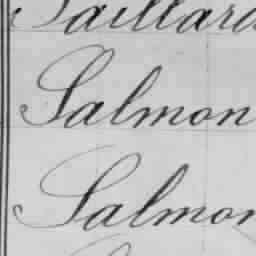 Saillard
Salmon
Salmon